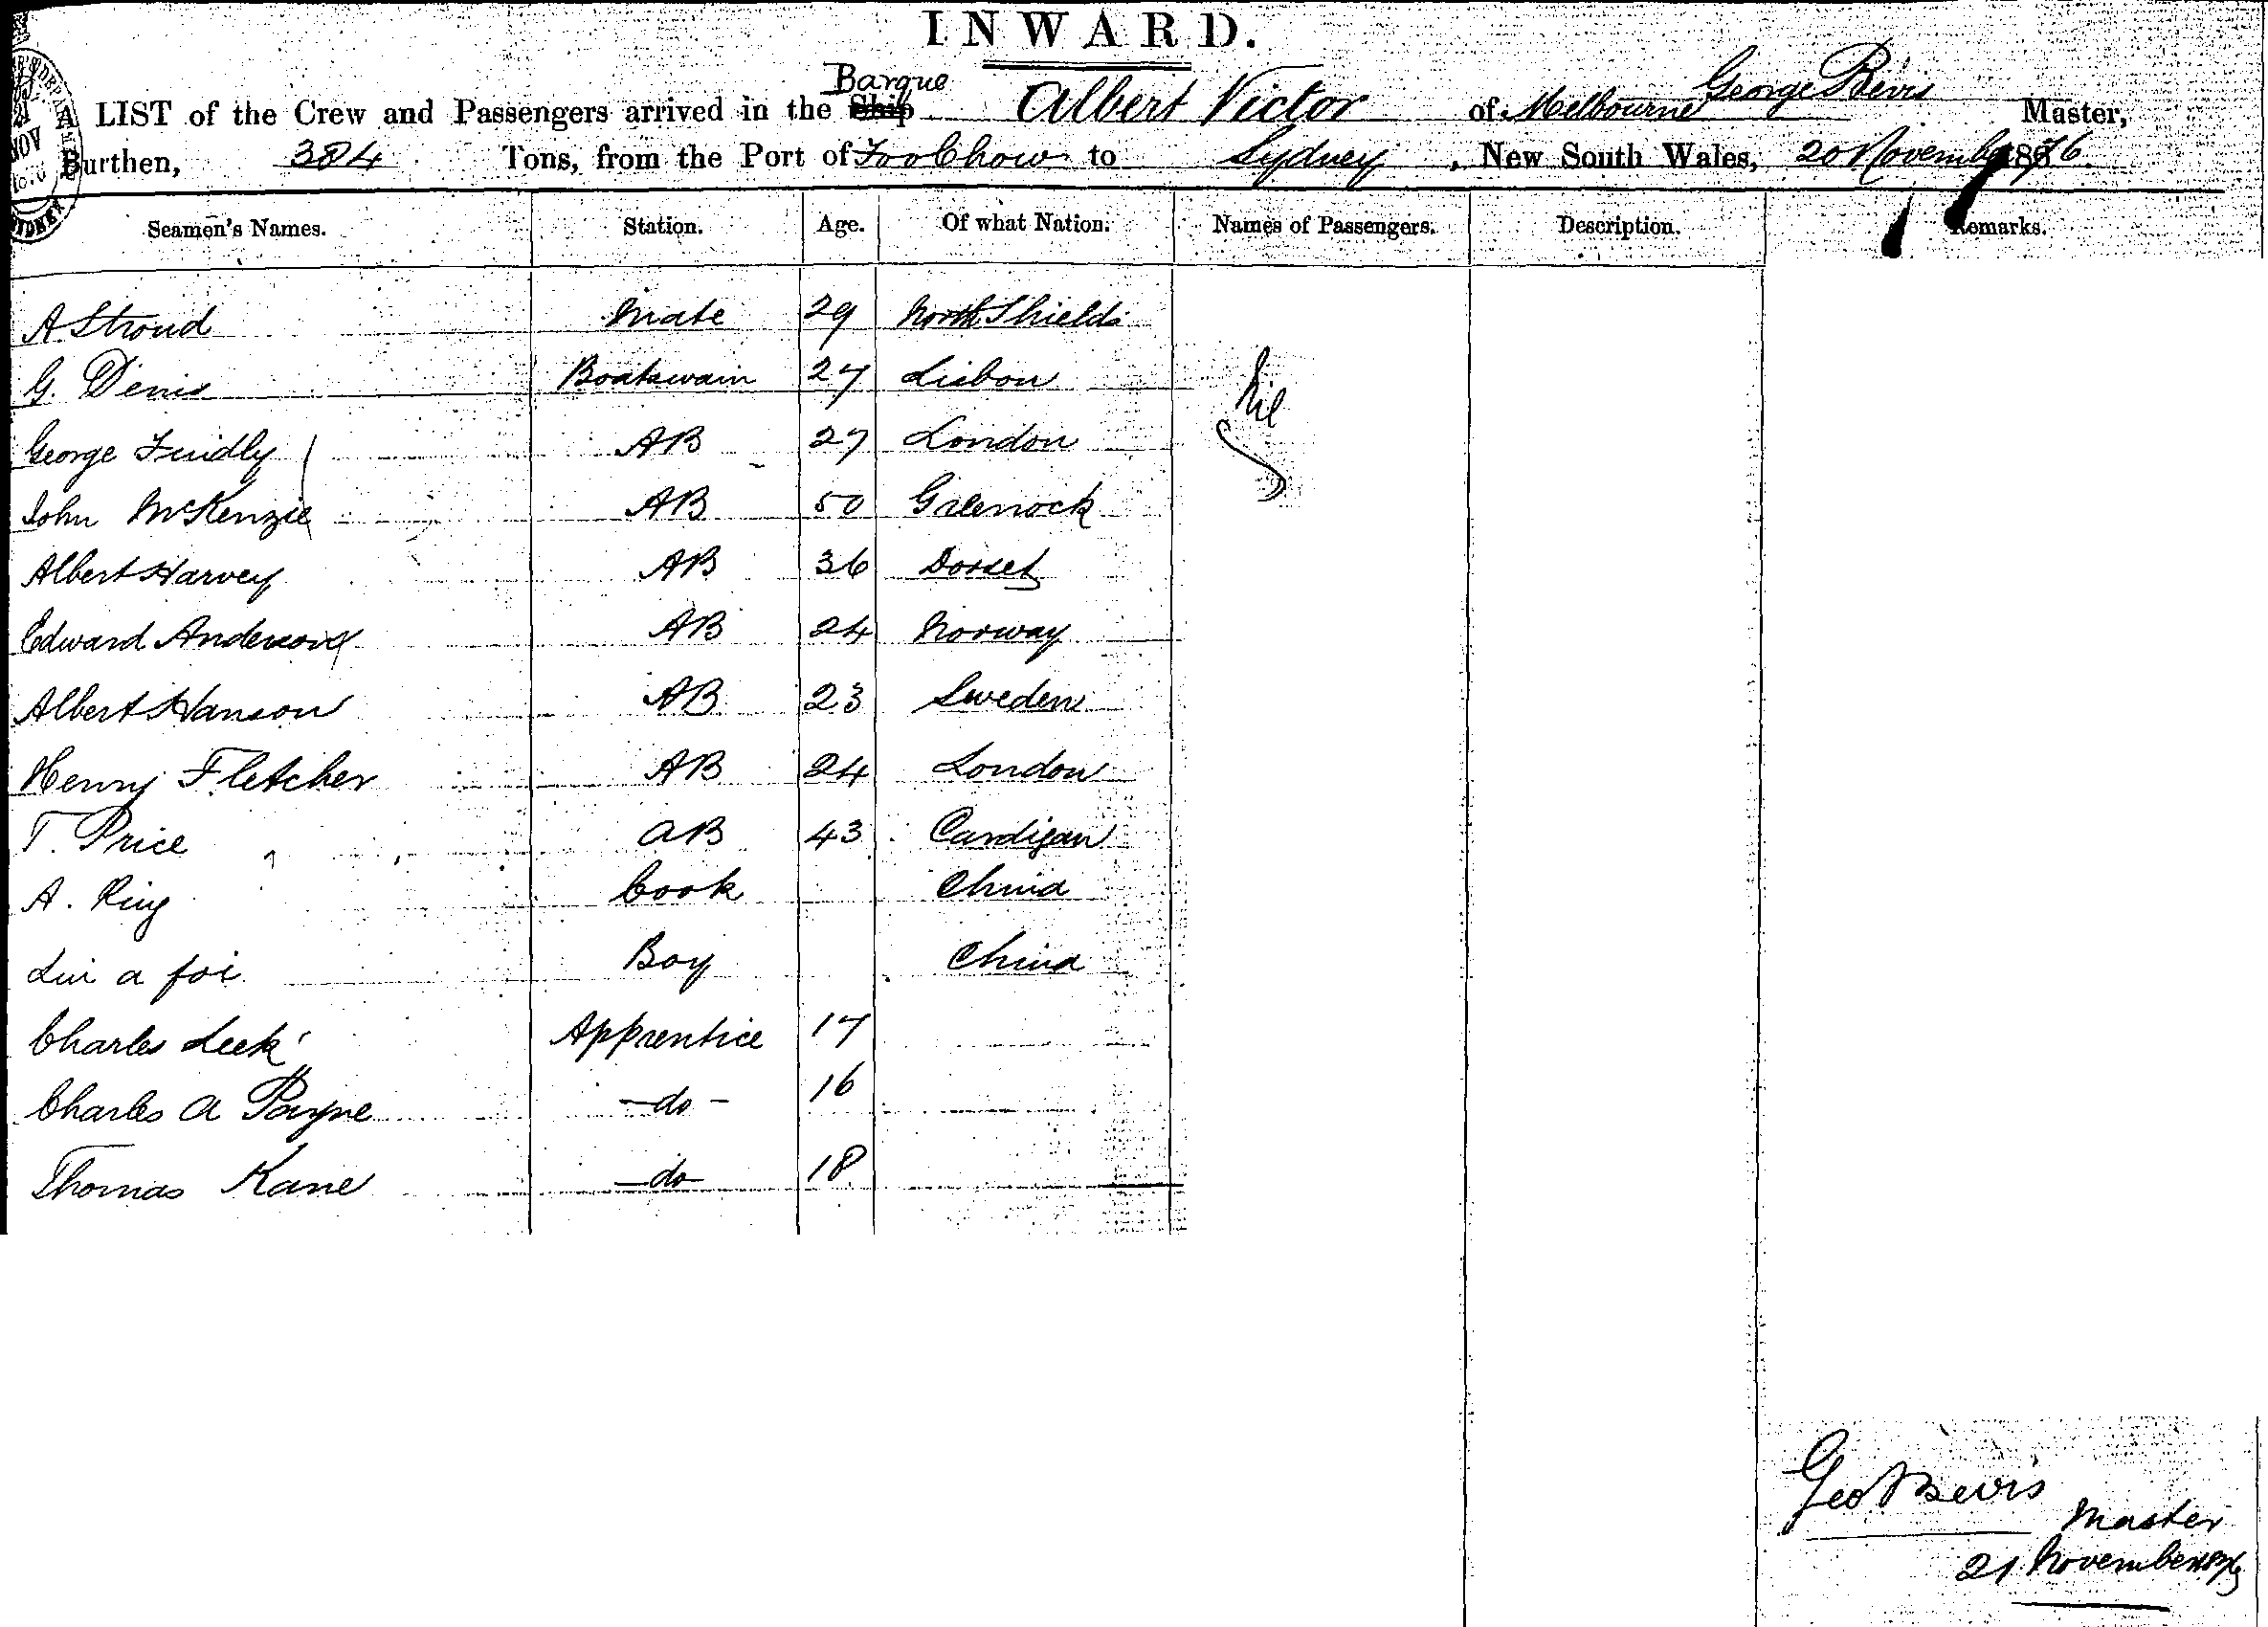 INWARD.
Barque
A LIST of the Crew and Passengers arrived in the Ship Albert Victor of Melbourne George Bevis Master,
Burthen, 384 Tons, from the Port of Foo Chow to Sydney, New South Wales, 20 November 1876.
Seamen's Names. Station. Age. Of what Nation. Names of Passengers. Description. Remarks.
A Stroud Mate 29 North Shields
G. Denis Boatswain 27 Lisbon
Nil
George Findly AB 27 London
John McKenzie AB 50 Greenock
Albert Harvey AB 36 Dorset
Edward Anderson AB 24 Norway
Albert Hanson AB 23 Sweden
Henry Fletcher AB 24 London
T. Price AB 43 Cardigan
A. King Cook China
Lin a foi Boy China
Charles Leek Apprentice 17
Charles A Payne -do- 16
Thomas Kane -do- 18
Geo Bevis
Master
21 November 1876